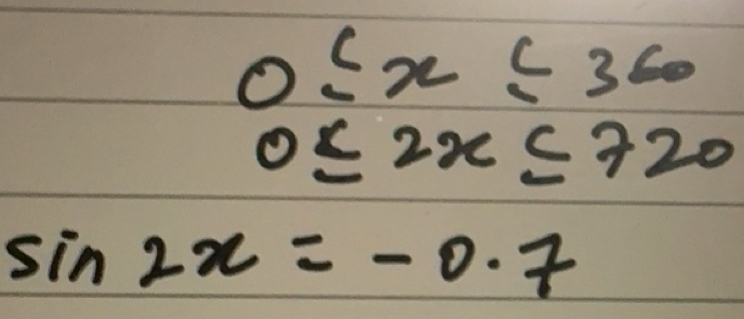 0 ≤ x ≤ 360
0 ≤ 2x ≤ 720
sin 2x = -0.7